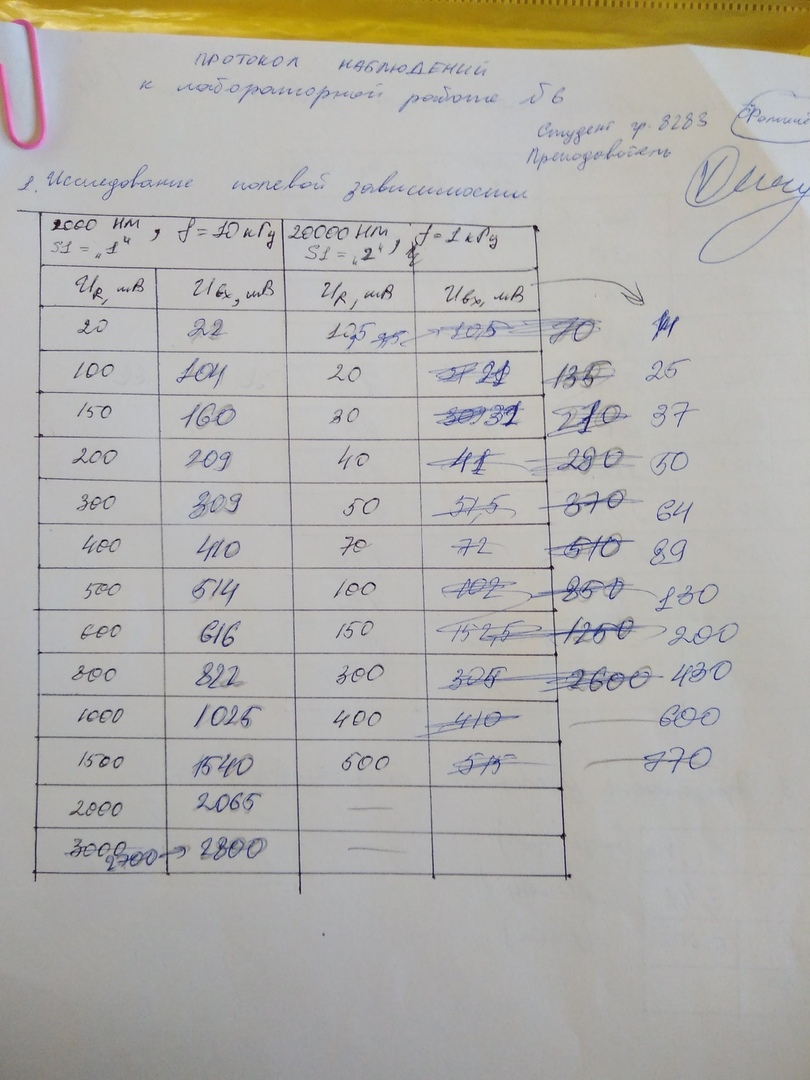 ПРОТОКОЛ НАБЛЮДЕНИЙ
к лабораторной работе №6
Студент гр. 8283
Преподаватель
1. Исследование полевой зависимости
2000 НМ, f = 10 кГц 20000 НМ, f = 1 кГц
S1 = „1“ S1 = „2“
U_R, мВ U_вх, мВ U_R, мВ U_вх, мВ
20 22 10,5 70
100 104 20 21 135 25
150 160 30 31 210 37
200 209 40 41 290 50
300 309 50 51,5 370 64
400 410 70 72 510 89
500 514 100 102 850 130
600 616 150 152,5 1250 200
800 822 300 305 2600 430
1000 1025 400 410 — 600
1500 1540 500 515 — 770
2000 2065 —
3000 2700 → 2800 —